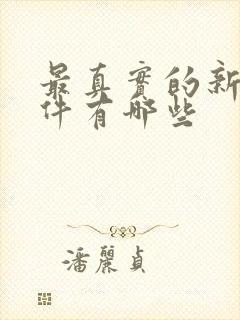 最真實的新
件有哪些
潘麗貞